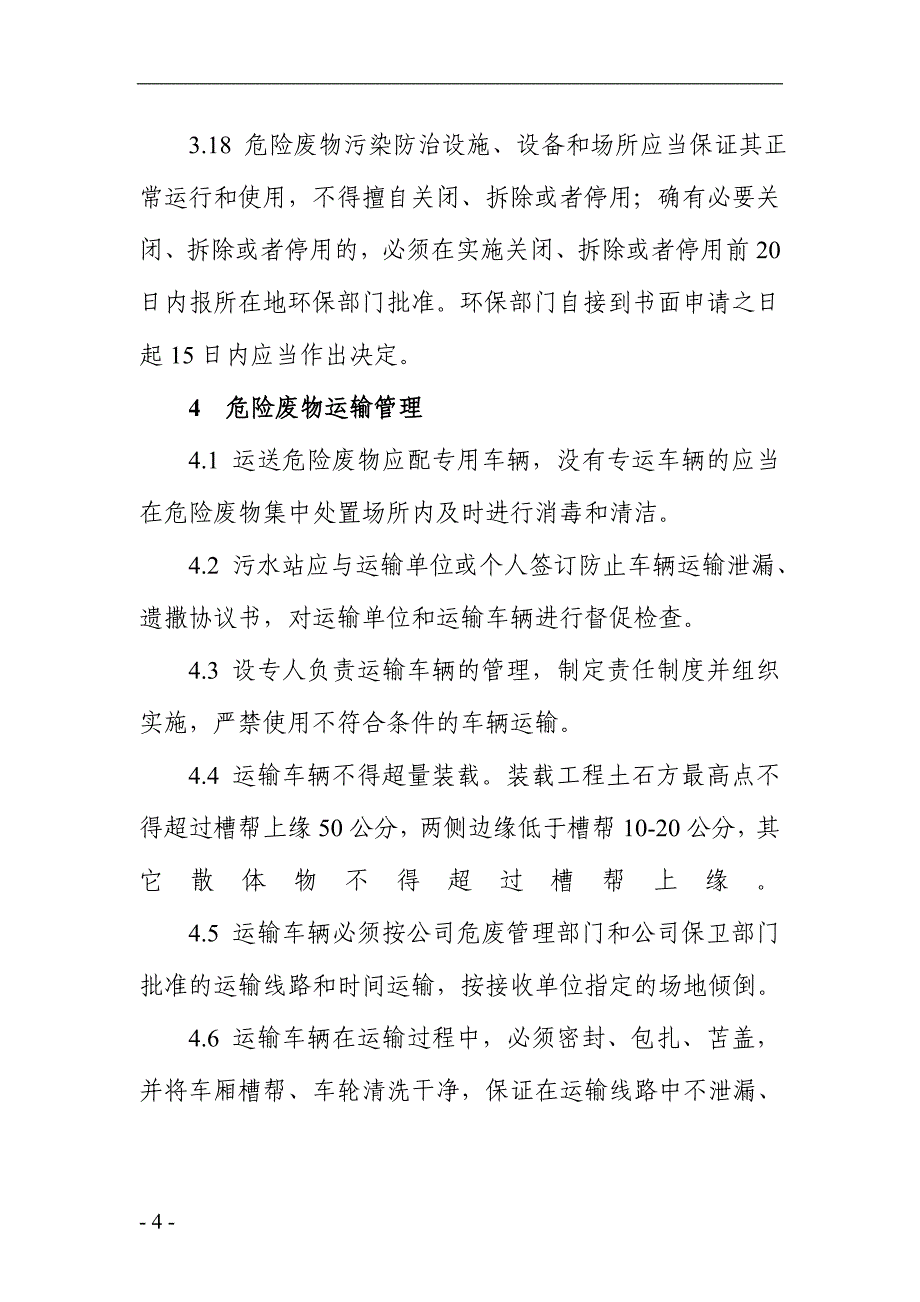 3.18 危险废物污染防治设施、设备和场所应当保证其正
常运行和使用，不得擅自关闭、拆除或者停用；确有必要关
闭、拆除或者停用的，必须在实施关闭、拆除或者停用前 20
日内报所在地环保部门批准。环保部门自接到书面申请之日
起 15 日内应当作出决定。
4 危险废物运输管理
4.1 运送危险废物应配专用车辆，没有专运车辆的应当
在危险废物集中处置场所内及时进行消毒和清洁。
4.2 污水站应与运输单位或个人签订防止车辆运输泄漏、
遗撒协议书，对运输单位和运输车辆进行督促检查。
4.3 设专人负责运输车辆的管理，制定责任制度并组织
实施，严禁使用不符合条件的车辆运输。
4.4 运输车辆不得超量装载。装载工程土石方最高点不
得超过槽帮上缘 50 公分，两侧边缘低于槽帮 10-20 公分，其
它散体物不得超过槽帮上缘。
4.5 运输车辆必须按公司危废管理部门和公司保卫部门
批准的运输线路和时间运输，按接收单位指定的场地倾倒。
4.6 运输车辆在运输过程中，必须密封、包扎、苫盖，
并将车厢槽帮、车轮清洗干净，保证在运输线路中不泄漏、
- 4 -